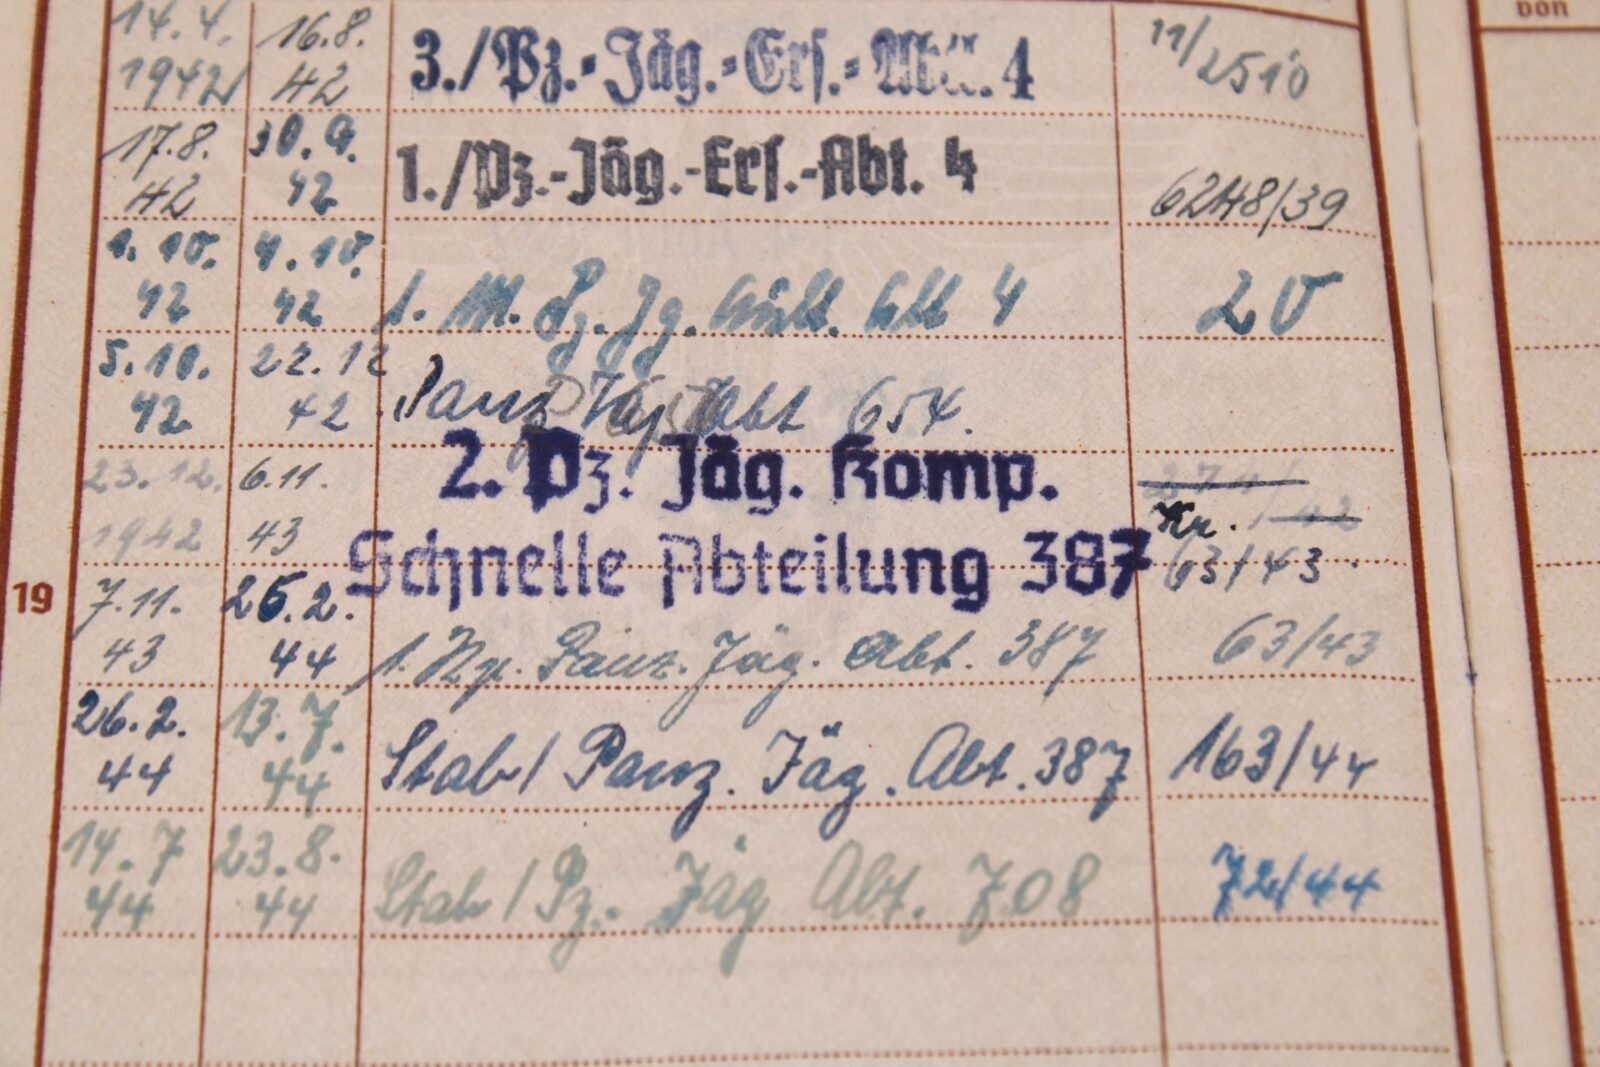 von
14.4. 16.8. 3./Pz.-Jäg.-Ers.-Abtl. 4 11/2510
1942 42
17.8. 30.9. 1./Pz.-Jäg.-Ers.-Abt. 4 6248/39
42 42
1.10. 4.10. 1. Pz. Jg. Abt 4 20
42 42
5.10. 22.12 Panz Jäg Abt 654.
42 42
23.12. 6.11. 2. Pz. Jäg. Komp.
1942 43 Schnelle Abteilung 387 63/43
19
7.11. 25.2. 1. Kp. Panz. Jäg. Abt. 387 63/43
43 44
26.2. 13.7. Stab/Panz. Jäg. Abt. 387 163/44
44 44
14.7 23.8. Stab/Pz. Jäg Abt. 708 72/44
44 44